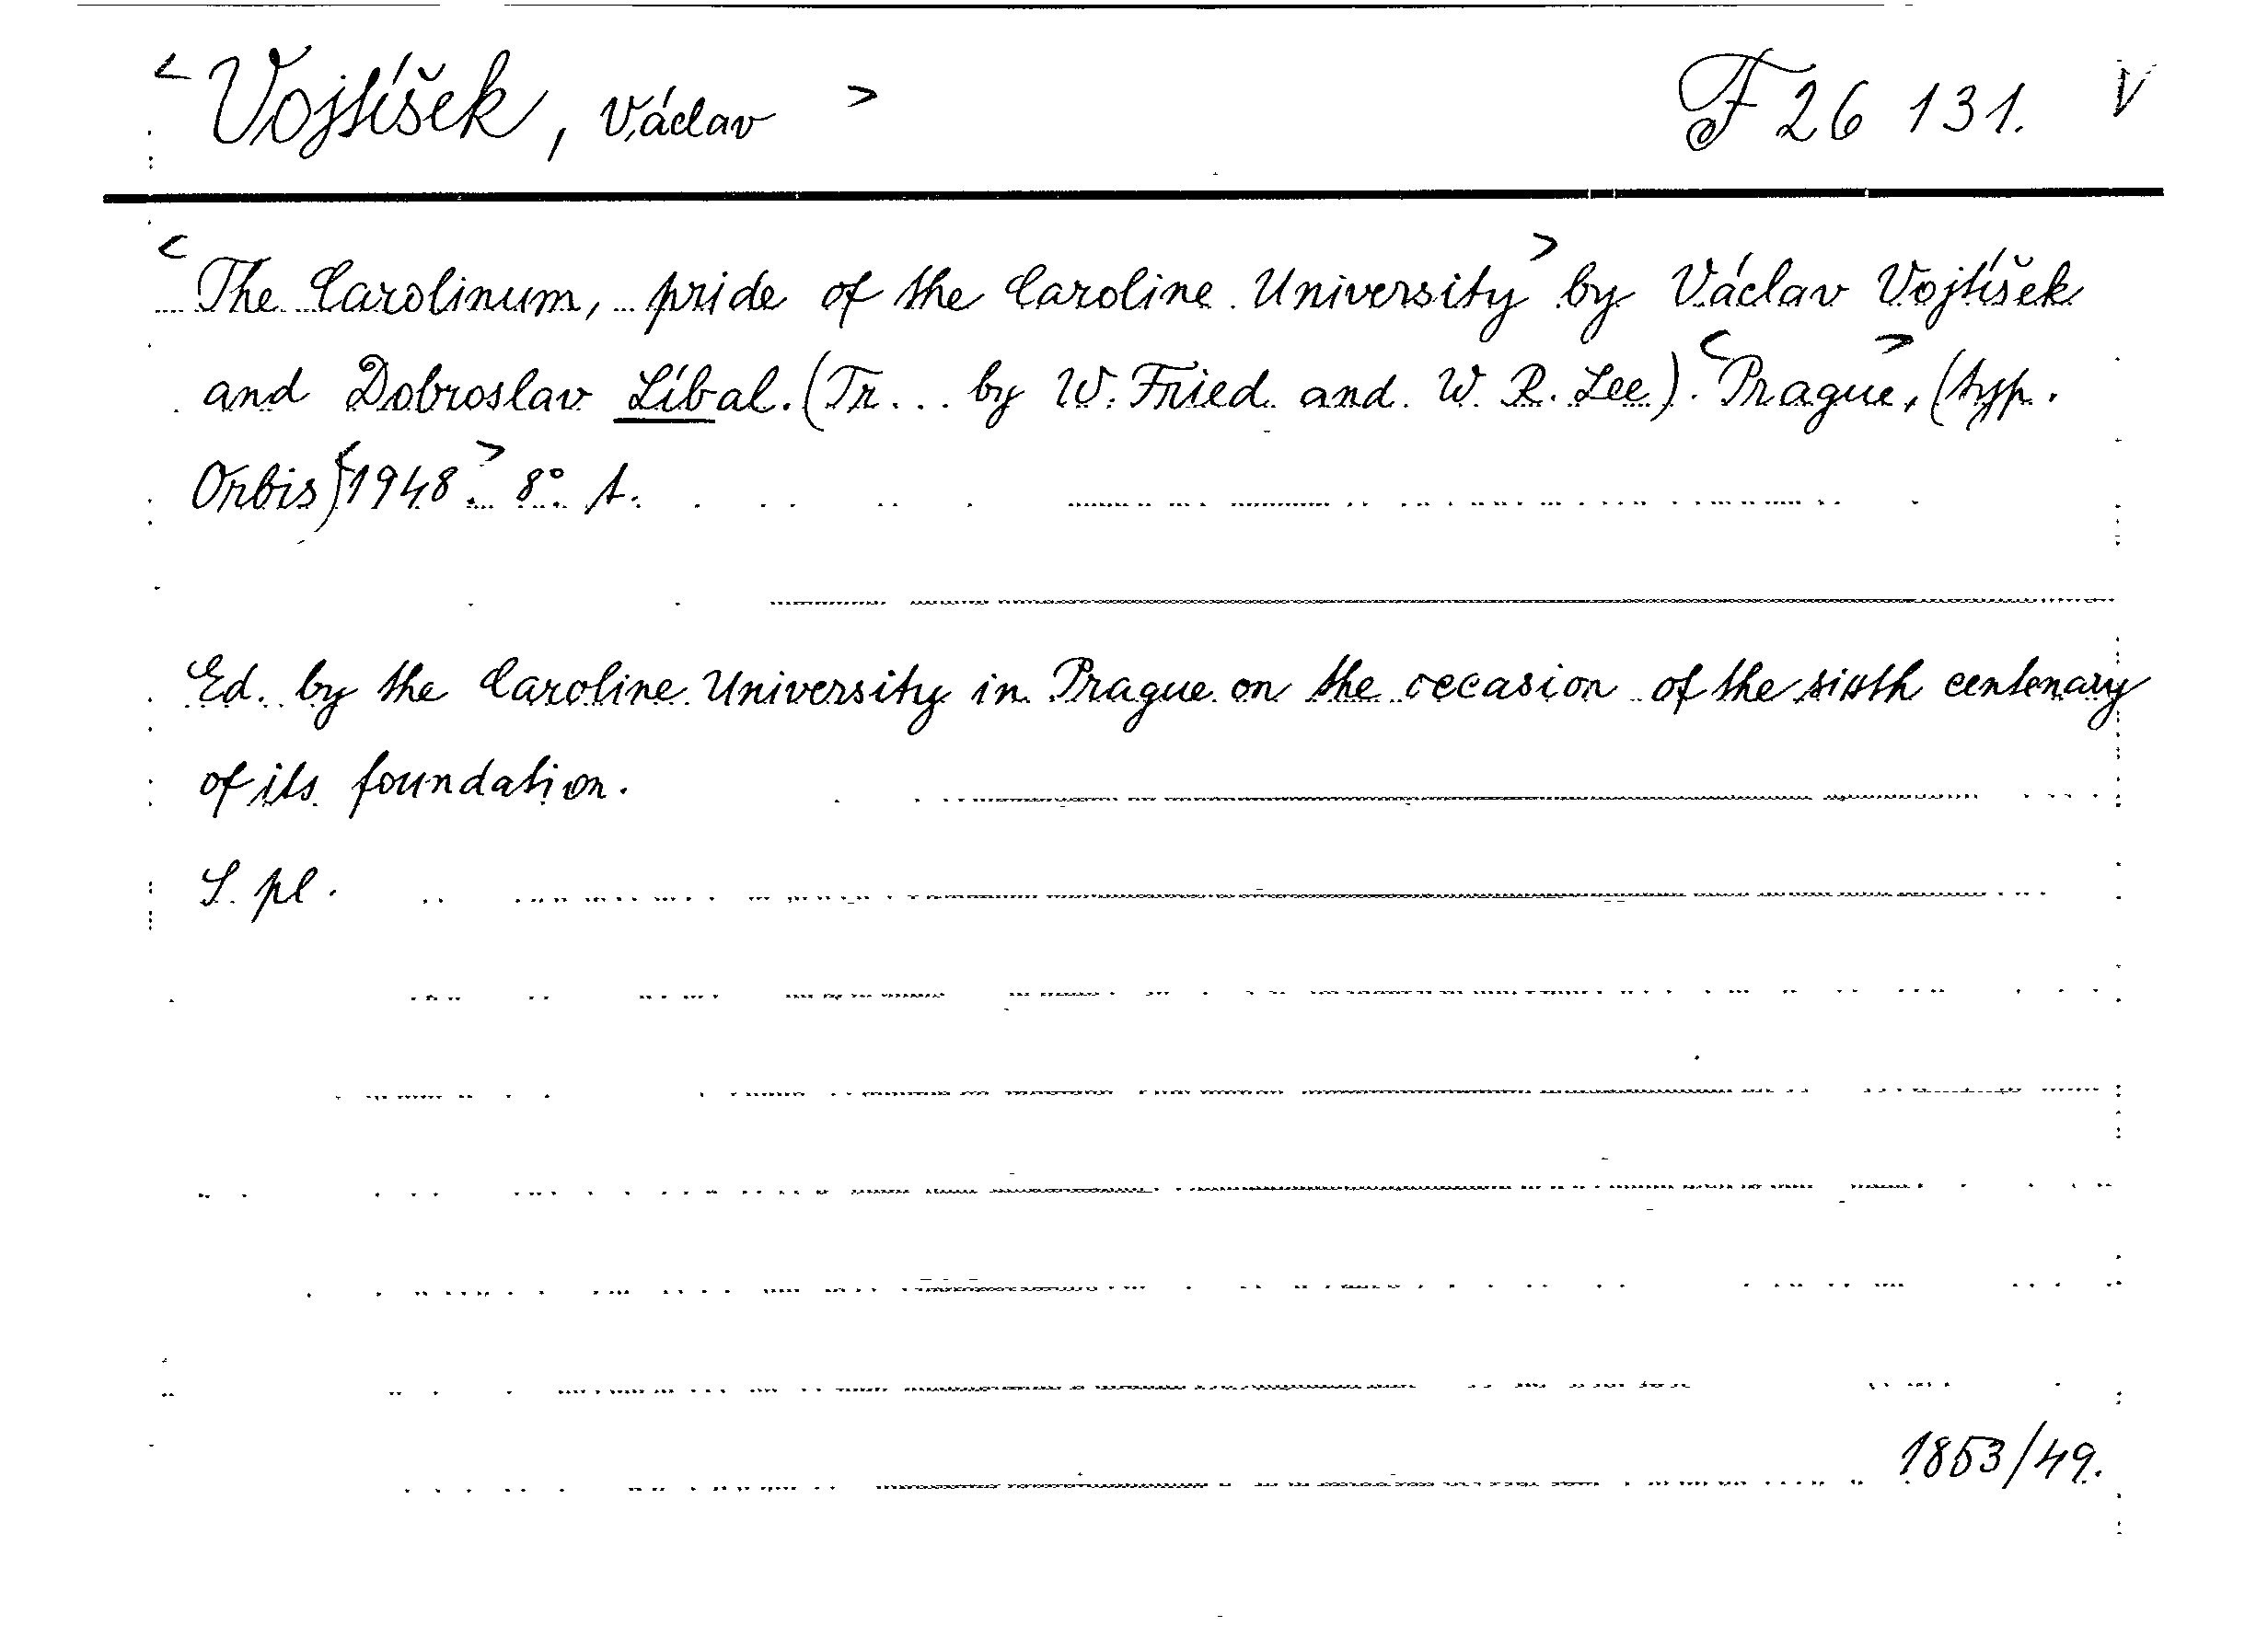 < Vojtíšek, Václav > F 26 131. V
<The Carolinum, pride of the Caroline University> by Václav Vojtíšek
and Dobroslav Líbal. (Tr... by W. Fried and W. R. Lee). <Prague>, (typ.
Orbis) <1948.> 8° t.
Ed. by the Caroline University in Prague on the occasion of the sixth centenary
of its foundation.
S. pl.
1853/49.